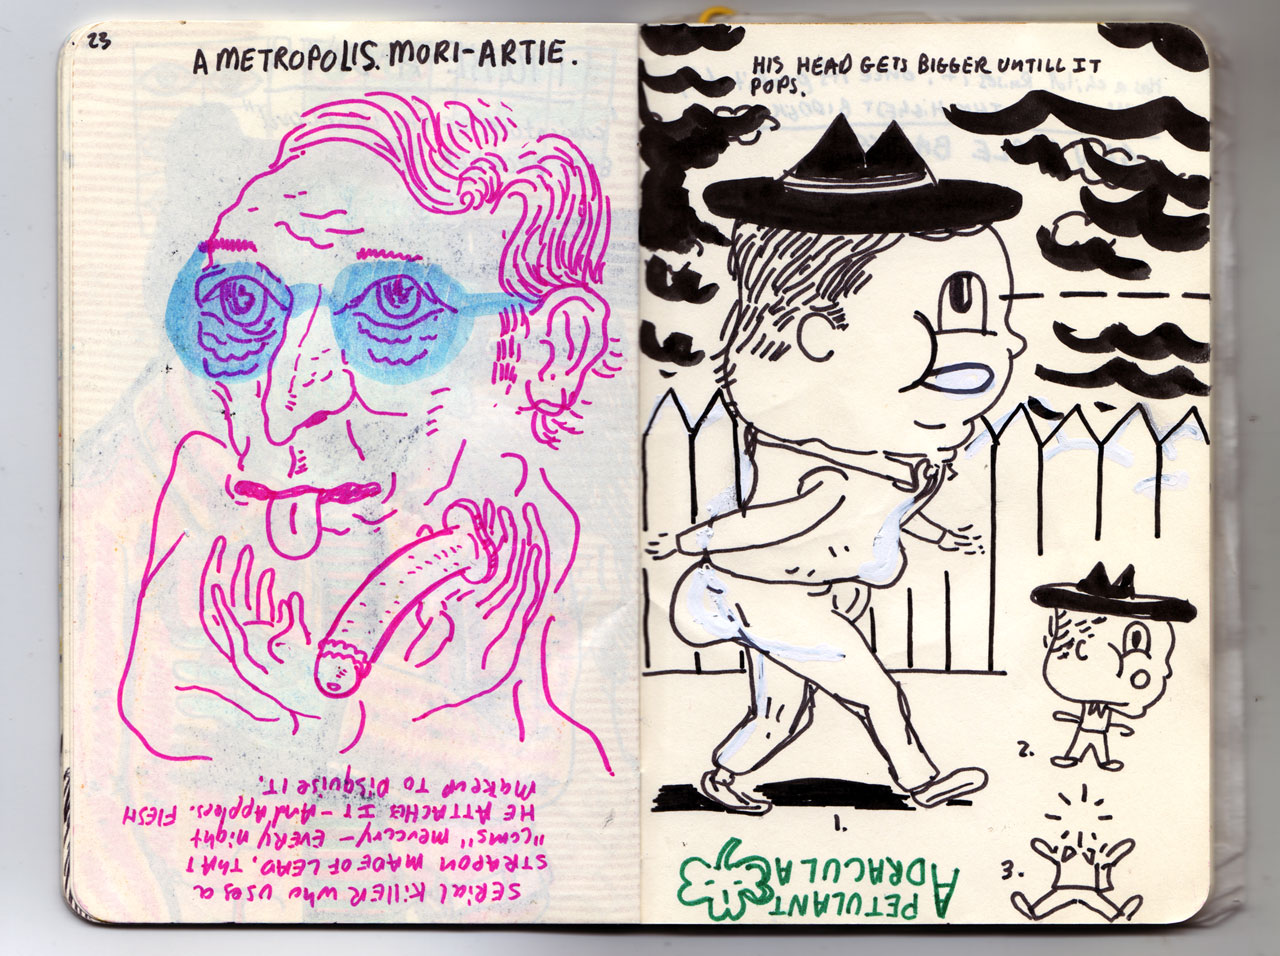 23
A METROPOLIS. MORI-ARTIE.
SERIAL KILLER WHO USES A
STRAPON MADE OF LEAD, THAT
"CUMS" MERCURY - EVERY NIGHT
HE ATTACHES IT - AND APPLIES. FLESH
MAKEUP TO DISGUISE IT.
HIS HEAD GETS BIGGER UNTILL IT
POPS.
1.
2.
3.
A PETULANT
DRACULA